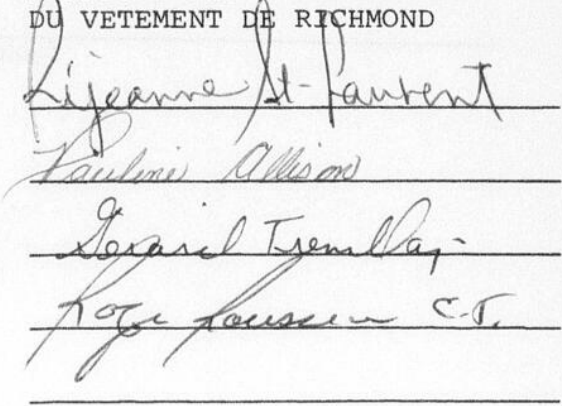 DU VETEMENT DE RICHMOND
Réjeanne St-Laurent
Pauline Allison
Gérard Tremblay
Roger C.T.